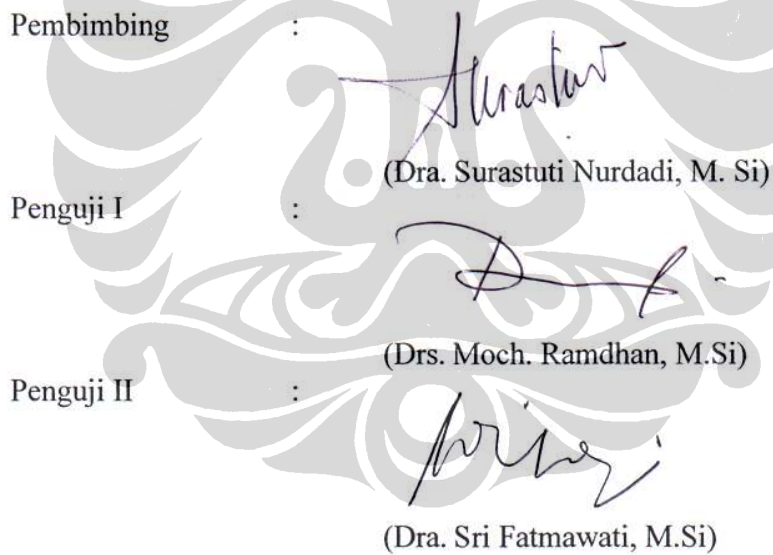 Pembimbing :
(Dra. Surastuti Nurdadi, M. Si)
Penguji I :
(Drs. Moch. Ramdhan, M.Si)
Penguji II :
(Dra. Sri Fatmawati, M.Si)